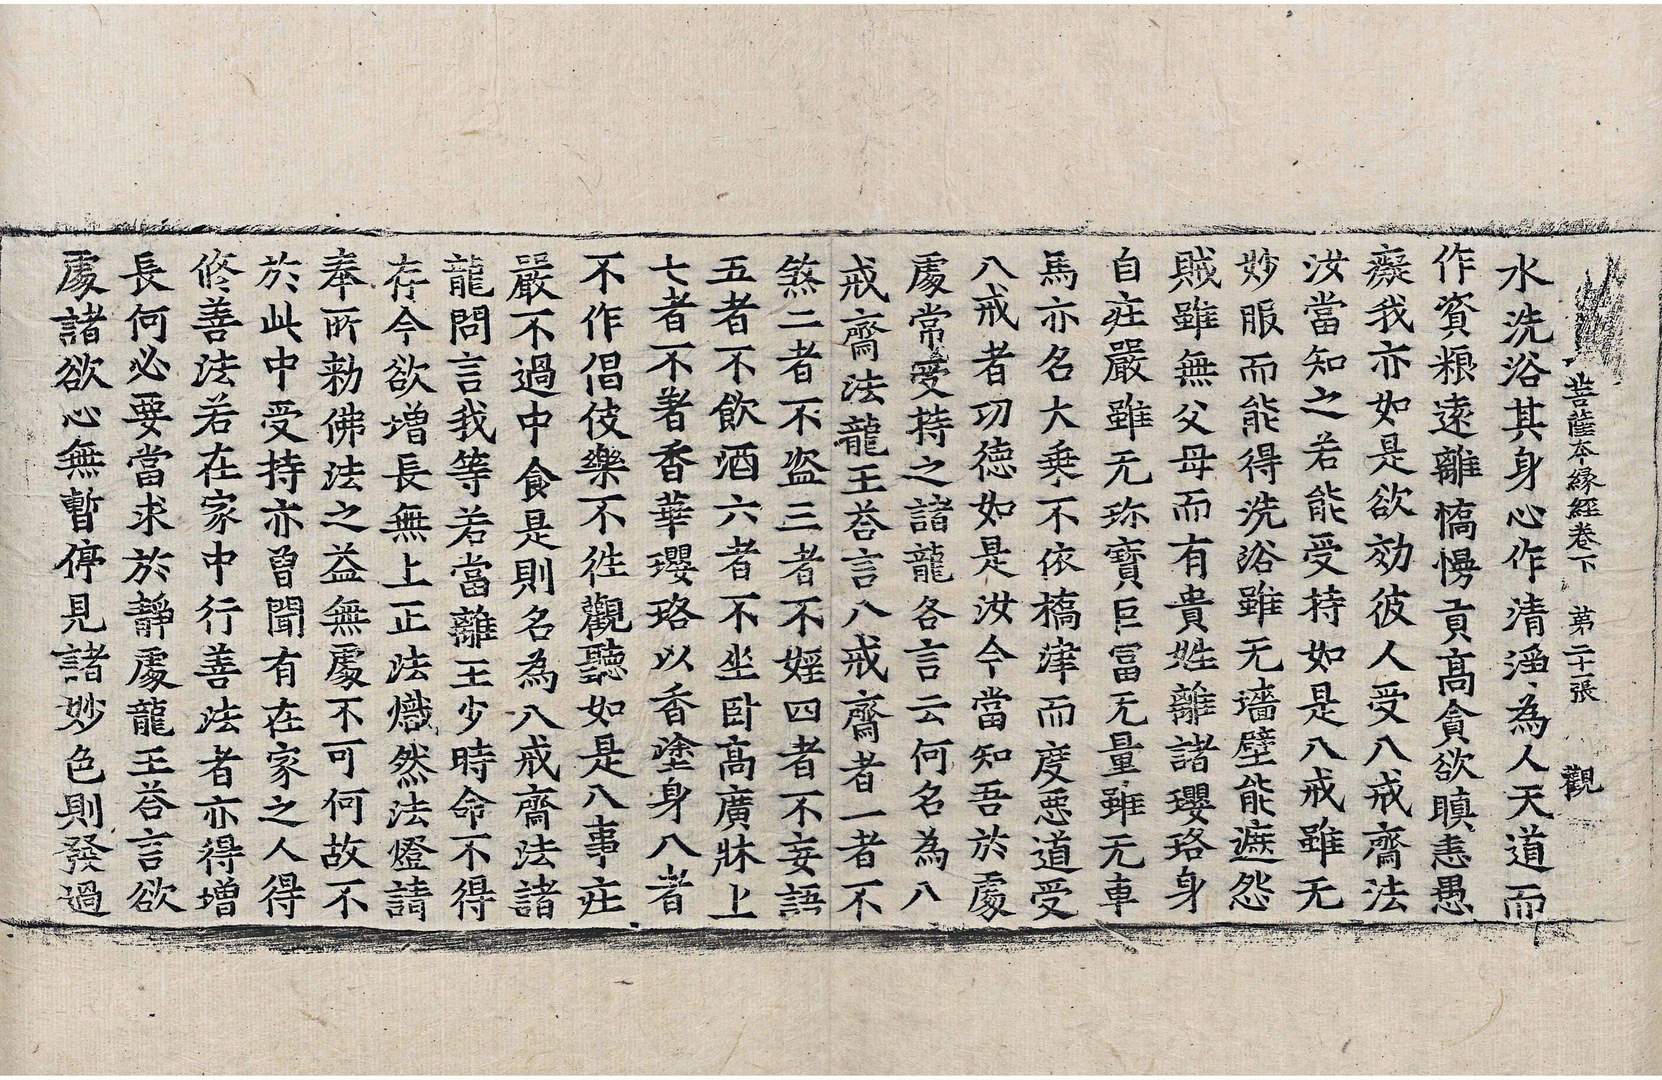 菩薩本緣經卷下 第二十一張 觀
水洗浴其身心作清淨為人天道而
作資粮遠離憍慢貢高貪欲瞋恚愚
癡我亦如是欲効彼人受八戒齋法
汝當知之若能受持如是八戒雖无
妙服而能得洗浴雖无墻壁能遮怨
賊雖無父母而有貴姓離諸瓔珞身
自莊嚴雖无珎寶巨冨无量雖无車
馬亦名大乗不依橋津而度惡道受
八戒者功德如是汝今當知吾於處
處常受持之諸龍各言云何名為八
戒齋法龍王荅言八戒齋者一者不
煞二者不盜三者不婬四者不妄語
五者不飲酒六者不坐卧高廣牀上
七者不著香華瓔珞以香塗身八者
不作倡伎樂不徃觀聽如是八事莊
嚴不過中食是則名為八戒齋法諸
龍問言我等若當離王少時命不得
存今欲增長無上正法熾然法燈請
奉所勑佛法之益無處不可何故不
於此中受持亦曽聞有在家之人得
修善法若在家中行善法者亦得增
長何必要當求於靜處龍王荅言欲
處諸欲心無暫停見諸妙色則發過